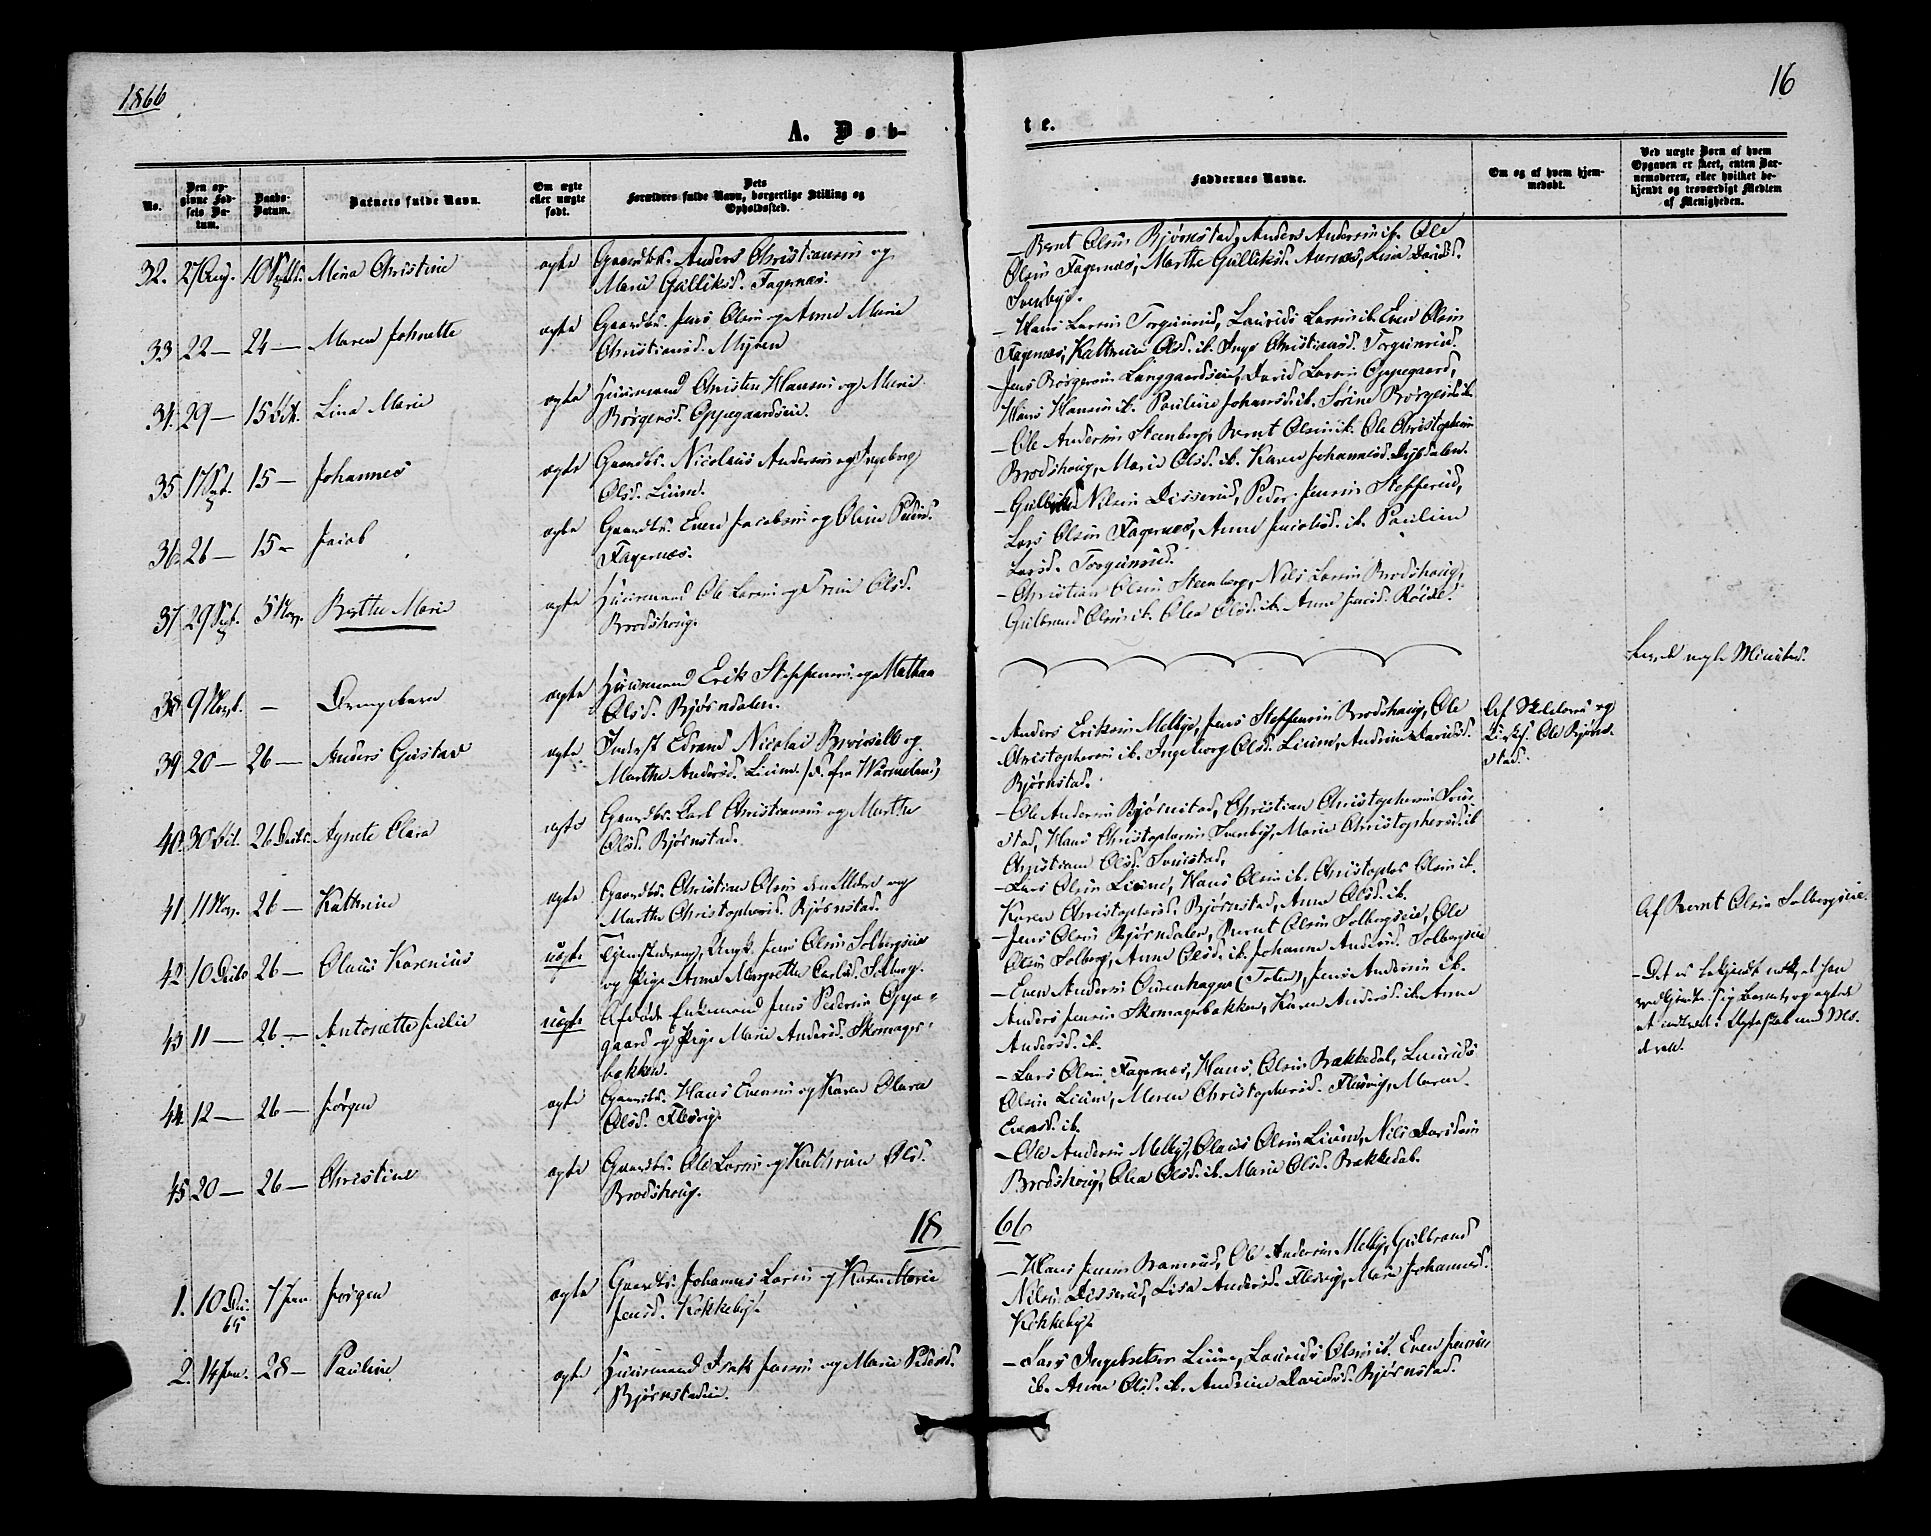 1866
16
A. Døb-
te.
No.
Den opgivne Fødsels Datum.
Daabs-Datum.
Barnets fulde Navn.
Om ægte eller uægte født.
Dets Forældres fulde Navn, borgerlige Stilling og Opholdssted.
Faddernes Navne.
Om og af hvem hjemmedøbt.
Ved uægte Børn af hvem Opgaven er skeet, enten Barnemoderen, eller hvilket bekjendt og troværdigt Medlem af Menigheden.
32. 27 Aug. 10 Septb. Mina Christine ægte Gaardbr. Anders Christiansen og
Marie Gulliksd. Fagernæs.
— Bernt Olsen Bjørnstad, Anders Andersen ib. Ole
Olsen Fagernæs, Marthe Gulliksd. Aurnes, Lina Davidsd.
Svenby.
33 22 — 24 — Maren Johnette ægte Gaardbr. Jens Olsen og Anne Marie
Christiansd. Myren
— Hans Larsen Torgunrud, Laurids Larsen ib. Even Olsen
Fagernæs, Kathrine Olsd. ib. Inge Christiansd. Torgunrud.
34. 29 — 15 Okt. Lina Marie ægte Huusmand Christen Hansen og Marie
Børgersd. Oppegaardseie.
— Jens Børgersen Langgaardseie, David Larsen Oppegaard,
Hans Hansen ib. Pauline Johansd. ib. Sørine Børgersd. ib.
35 17 Sept. 15 — Johannes ægte Gaardbr. Nicolaus Andersen og Ingeborg
Olsd. Lium.
— Ole Andersen Steenberg, Bernt Olsen ib. Ole Christophersen
Brodshoug, Marie Olsd. ib. Karen Johannesd. Dybdalen.
36. 26 — 15 — Jacob ægte Gaardbr. Even Jacobsen og Oline Pedersd.
Fagernæs.
— Gulbrand Nilsen Disserud, Peder Jensen Stefferud,
Lars Olsen Fagernæs, Anne Jacobsd. ib. Pauline
Larsd. Torgunrud.
37 29 Sept. 5 Nov. Berthe Marie ægte Huusmand Ole Larsen og Trine Olsd.
Brodshoug.
— Christian Olsen Steenberg, Nils Larsen Brodshoug,
Gulbrand Olsen ib. Olea Olsd. ib. Anne Jensd.
38 9 Novb. — Drengebarn ægte Huusmand Erik Steffensen og Mathea
Olsd. Bjørndalen.
39 20 — 26 — Anders Gustav ægte. Inderst Edvard Nicolai og
Marthe Andersd. Lium. (d. fra Wærmeland)
— Anders Eriksen Melbye, Jens Steffensen Brodshoug, Ole
Christophersen ib. Ingeborg Olsd. Lium, Andrine Davidsd.
Bjørnstad.
Af Skolelærer og
Kirkes. Ole Bjørn-
stad.
40. 30 Okt. 26 Decbr. Agnete Clara ægte Gaardbr. Carl Christiansen og Marthe
Olsd. Bjørnstad.
— Ole Andersen Bjørnstad, Christian Christophersen
stad, Hans Christophersen Svenby, Marie Christophersd. ib
Christiane Olsd.
41. 11 Nov. 26 — Kathrine ægte Gaardbr. Christian Olsen den Ældre og
Marthe Christophersd. Bjørnstad.
— Lars Olsen Lium, Hans Olsen ib. Christopher Olsen ib.
Karen Christophersd. Bjørnstad, Anne Olsd. ib.
42 10 Decbr 26 — Olaus Karenius uægte Tjenestedreng, Ungk. Jens Olsen Solbergseie
og Pige Anne Margrethe Carlsd. Solberg.
— Jens Olsen Bjørndalen, Bernt Olsen Solbergseie, Ole
Olsen Solberg, Anne Olsd. ib. Johanne Andersd. Solbergseie
Af Bernt Olsen Solbergseie.
43 11 — 26 — Antonette Julie uægte Afdøde Enkemand Jens Pedersen Oppe-
gaard og Pige Marie Andersd. Skomager-
bækken.
— Even Andersen (Toten), Jens Andersen ib.
Anders Jensen Skomagerbækken, Karen Andersd. ib. Anne
Andersd. ib.
— Det er bekjendt nok, at han
vedkjendte sig Barnet og agtede
at indtræde i Ægteskab med Mo-
deren.
44. 12 — 26 — Jørgen ægte Gaardbr. Hans Evensen og Karen Olava
Olsd. Flesvig.
— Lars Olsen Fagernæs, Hans Olsen Bækkedal, Laurids
Olsen Lium, Maren Christophersd. Flesvig, Maren
Evensd. ib.
45 20 — 26 — Christine ægte Gaardbr. Ole Larsen og Kathrine Olsd.
Brodshoug.
— Ole Andersen Melby, Olaus Olsen Lium, Nils Davidsen
Brodshoug, Olea Olsd. ib. Marie Olsd. Bækkedal.
18 66
1. 10 Dec. 65 7 Jan. Jørgen ægte Gaardbr. Johannes Larsen og Karen Marie
Jensd. Kokkeby.
— Hans Jensen Ramrud, Ole Andersen Melby, Gulbrand
Nilsen Disserud, Lisa Andersd. Flesvig, Maren Johannesd.
Kokkeby.
2. 14 Jan. 28 — Pauline ægte Huusmand Isak Jensen og Marie Pedersd.
Bjørnstadeie.
— Lars Ingebretsen Lium, Laurids Olsen ib. Even Jensen
ib. Anne Olsd. ib. Andrine Davidsd. Bjørnstad.